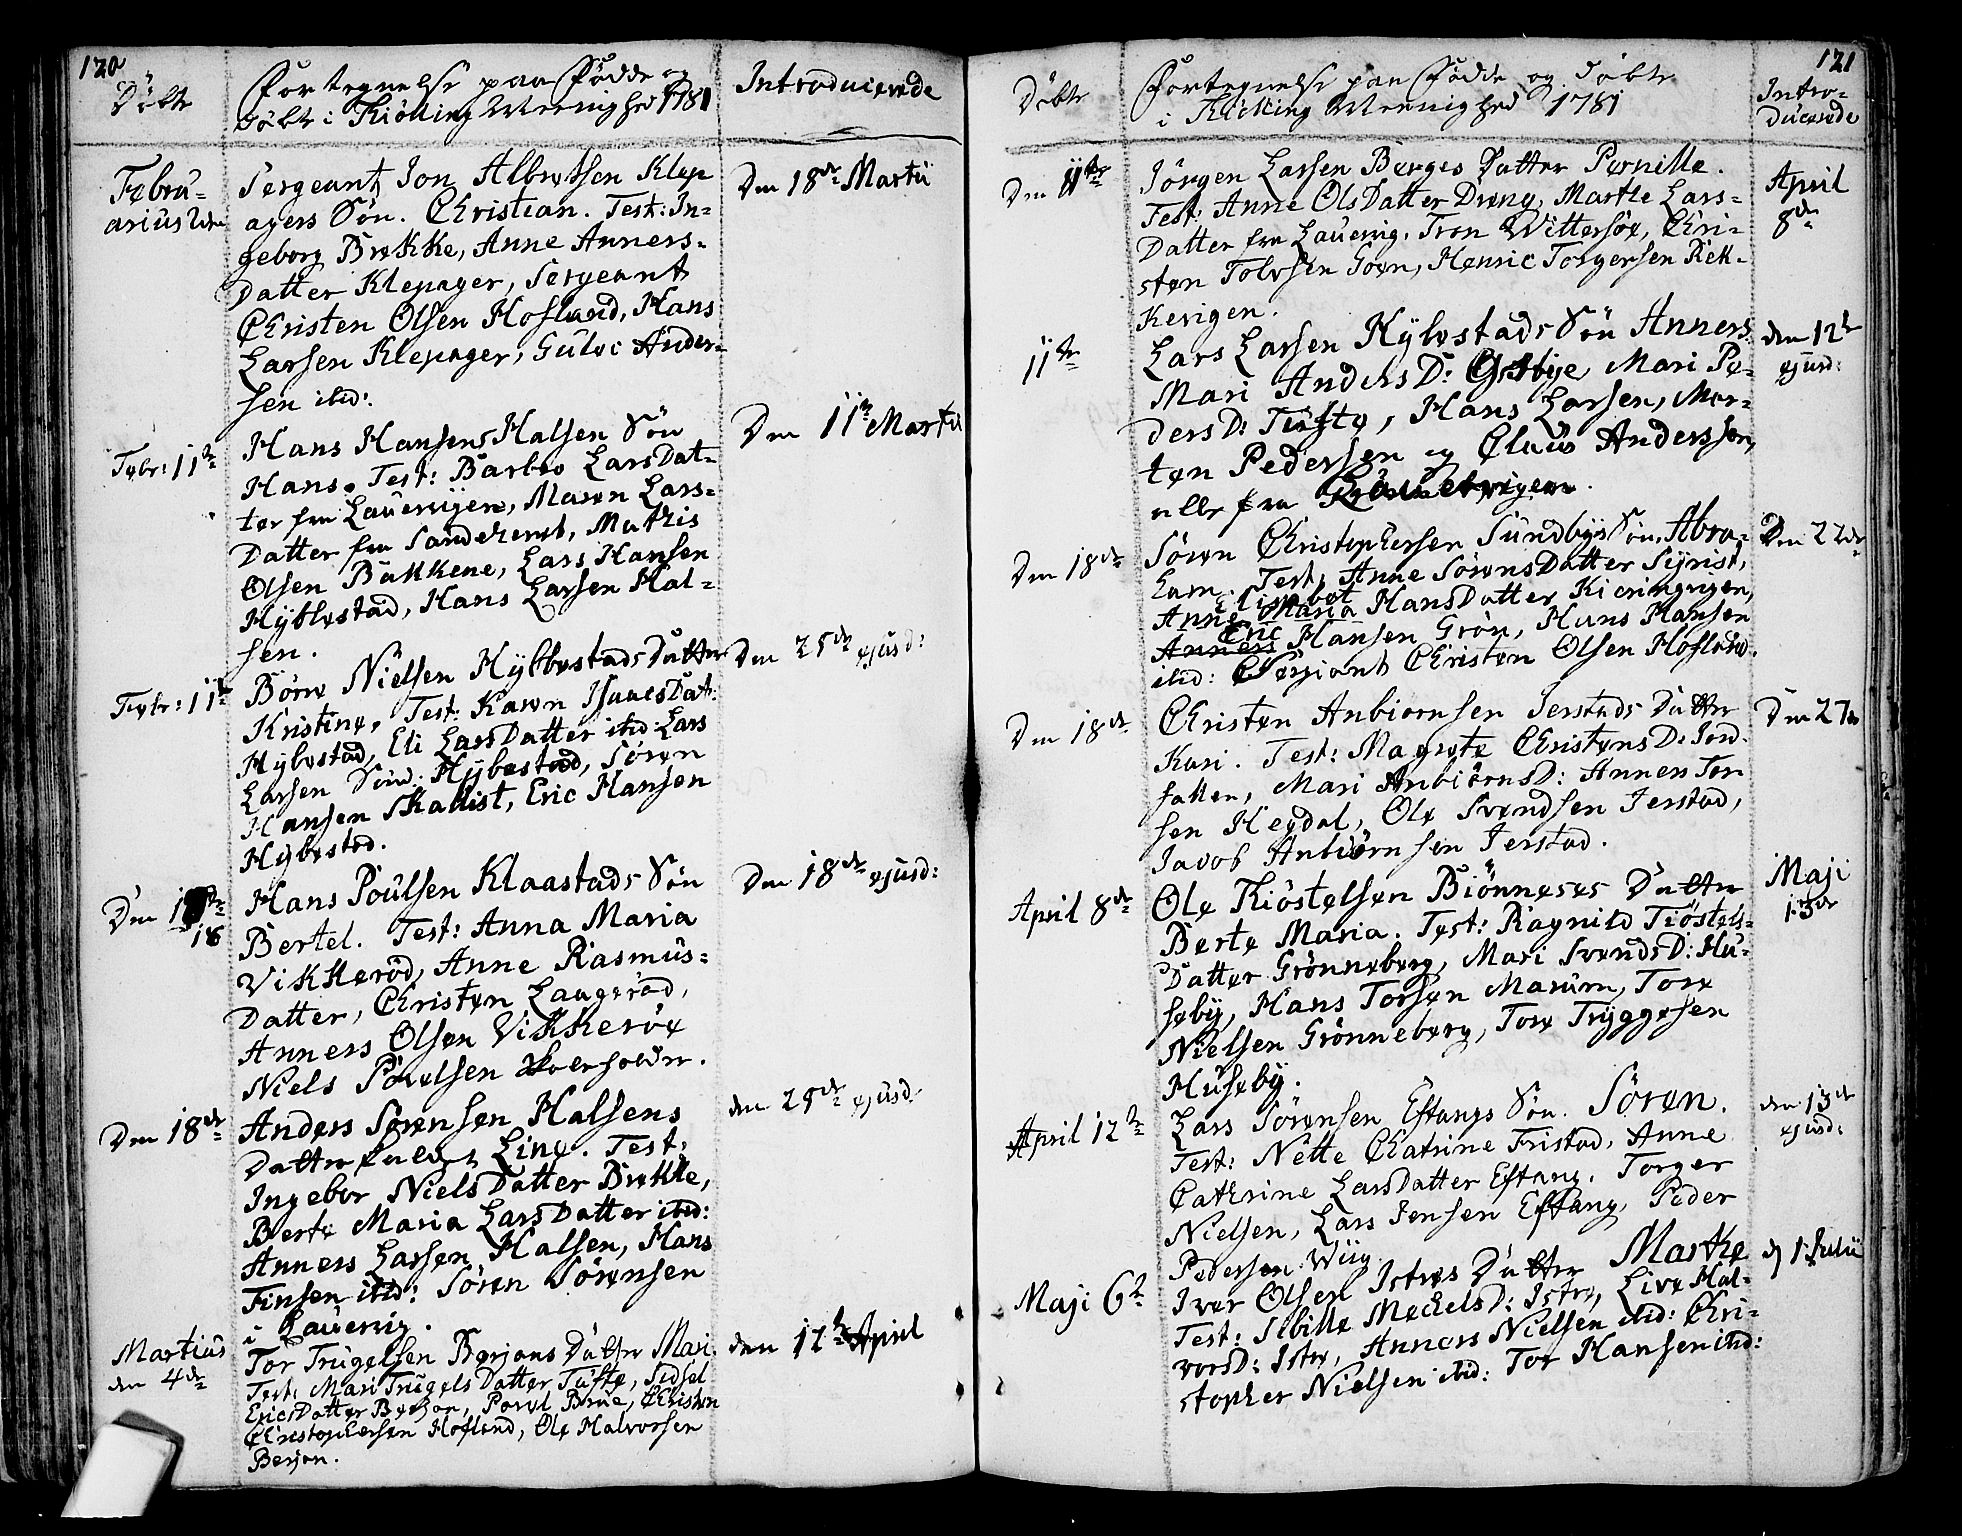 120
Döbte
Fortegnelse paa Födde og
Döbte i Kiölling Meenighed 1781
Introducerede
Febru-
arius
Sergeant Jon Albretsen Klep
agers Sön. Christian. Test: In-
geborg Brekke, Anne Anners-
Datter Klepager, Sergeant
Christen Olsen Hofland, Hans
Larsen Klepager, Gulvi Ander-
sen ibid:
Den 18de Martii
Febr: 11te
Hans Hansens Halsen Sön
Hans. Test: Barbro LarsDat-
ter fra Lauervigen, Maren Lars-
Datter fra Sandehered, Mathis
Olsen Bakkene, Lars Hansen
Hyblestad, Hans Larsen Hal-
sen.
Den 11te Martii
Febr: 11te
Börre Nielsen Hÿbbestads Datter
Kristine. Test: Karen IsaacsDat:
Hybestad, Eli LarsDatter ibid: Lars
Larsen Hÿbestad, Sören
Hansen Skallist, Eric Hansen
Hybestad.
Den 25de ejusd:
Den
18
Hans Poulsen Klaastads Sön
Bertel. Test: Anna Maria
Vikkeröd, Anne Rasmus-
Datter, Christen Laugeröd,
Anners Olsen Vikkeröe
Niels Povelsen Skoleholder.
Den 18de ejusd:
Den 18de
Anders Sörensen Halsens
Datter Line. Test:
Ingebor NielsDatter Brekke,
Berte Maria LarsDatter ibid:
Anners Larsen Halsen, Hans
Finsen ibid: Sören Sörensen
i Lauervig.
den 25de ejusd
Martius
den 4de
Tor Trugelsen Berjans Datter Mari.
Test: Mari TrugelsDatter Tufte, Sidsel
EricsDatter Berjan, Povel Brue, Christen
Christophersen Hofland, Ole Halvorsen
Berjan.
den 12te April
121
Döbte
Fortegnelse paa Födde og Döbte
i Kiölling Meenighed 1781
Intro-
ducerede
Den 11te
Jörgen Larsen Berges Datter Pernille.
Test: Anne OlsDatter Dreng, Marthe Lars-
Datter fra Lauervig, Tron Wittersöe, Chri-
sten Tolvsen Goen, Henric Torgersen Rek-
kevigen.
April
8de
11te
Lars Larsen Hÿbestads Sön Anners.
Mari AndersD: Östbye, Mari Pe-
dersD: Tufte, Hans Larsen, Mor-
ten Pedersen og Claus Anderssen,
alle fra
den 12te
ejusd:
Den 18de
Sören Christophersen Sundbÿs Sön, Abra-
ham. Test: Anne SörensDatter Syrist,
Elisabet
Anne Maria HansDatter Kieringvigen,
Eric
Anners Hansen Grön, Hans Hansen
ibid: Sersiant Christen Olsen Hofland.
Den 22de
Den 18de
Christen Anbiörnsen Jerstads Datter
Kari. Test: Magrete ChristensD: Jord-
falten, Mari AnbiörnsD: Anners Tor-
sen Hegdal, Ole Svendsen Jerstad,
Jacob Anbiörnsen Jerstad.
Den 27de
April 8de
Ole Kiöstelsen Biönneses Datter
Berte Maria. Test: Ragnild Tiöstels-
Datter Grönneberg, Mari SvendsD: Hu-
seby, Hans Torsen Marum, Tore
Nielsen Grönneberg, Tore Tryggesen
Huseby.
Maji
13de
April 12te
Lars Sörensen Eftangs Sön. Sören.
Test: Nette Chatrine Fristad, Anne
Cathrine LarsDatter Eftang, Torger
Nielsen, Lars Jensen Eftang, Peder
Pedersen Wiig.
den 13de
ejusd:
Maji 6te
Iver Olsen Istres Datter Marthe
Test: Sibille MechelsD: Istre, Live Hal-
vorsD: Istre, Anners Nielsen ibid: Chri-
stopher Nielsen ibid: Tor Hansen ibid:
d 1 Julii